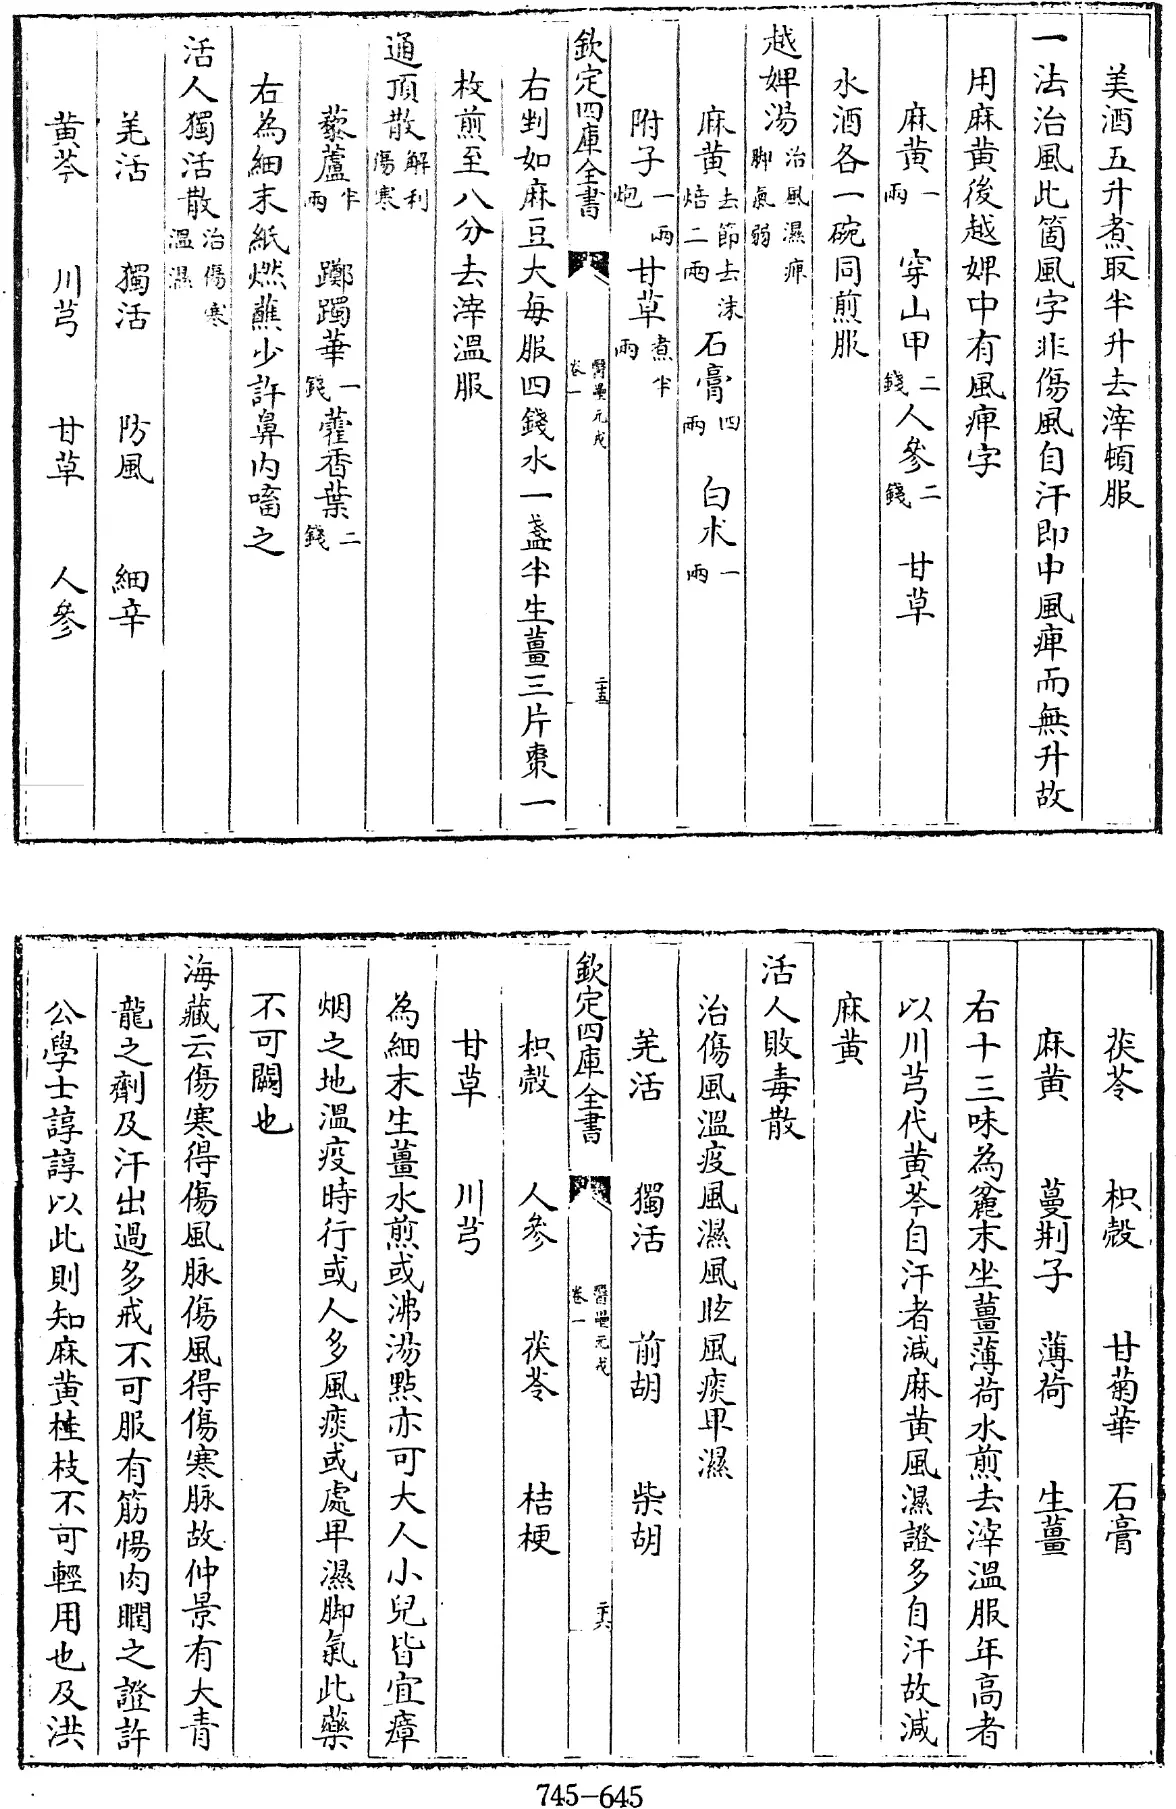 美酒五升煮取半升去滓頓服
一法治風此箇風字非傷風自汗即中風痺而無升故
用麻黄後越婢中有風痺字
麻黄一兩 穿山甲二錢 人參二錢 甘草
水酒各一碗同煎服
越婢湯治風濕痺脚氣弱
麻黄去節去沫焙二兩 石膏四兩 白朮一兩
附子一兩炮 甘草煮半兩
欽定四庫全書 醫壘元戎卷一 二十五
右剉如麻豆大每服四錢水一盞半生薑三片棗一
枚煎至八分去滓溫服
通頂散解利傷寒
藜蘆半兩 躑躅華一錢 藿香葉二錢
右為細末紙燃蘸少許鼻内㗜之
活人獨活散治傷寒溫濕
羌活 獨活 防風 細辛
黄芩 川芎 甘草 人參
茯苓 枳殻 甘菊華 石膏
麻黄 蔓荆子 薄荷 生薑
右十三味為麄末坐薑薄荷水煎去滓溫服年高者
以川芎代黄芩自汗者減麻黄風濕證多自汗故減
麻黄
活人敗毒散
治傷風溫疫風濕風眩風痰卑濕
羌活 獨活 前胡 柴胡
欽定四庫全書 醫壘元戎卷一 二十六
枳殻 人參 茯苓 桔梗
甘草 川芎
為細末生薑水煎或沸湯㸃亦可大人小兒皆宜瘴
烟之地溫疫時行或人多風痰或處卑濕脚氣此藥
不可闕也
海藏云傷寒得傷風脉傷風得傷寒脉故仲景有大青
龍之劑及汗出過多戒不可服有筋惕肉瞤之證許
公學士諄諄以此則知麻黄桂枝不可輕用也及洪
745-645